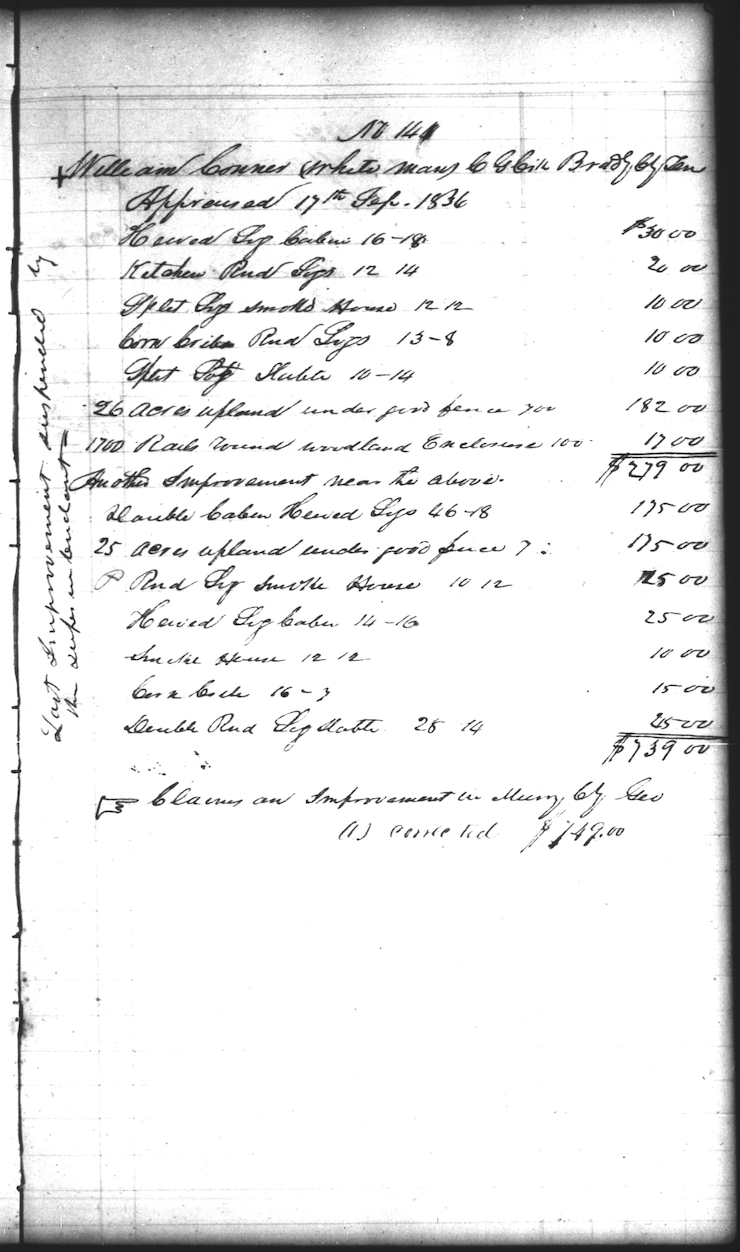 No 141
William Conner (white man) C G Crk Bradly Cty Ten
Appraised 17th Sep. 1836
Hewed Log Cabin 16-18 $30 00
Kitchen Rnd Logs 12 14 20 00
Split Log Smoke House 12 12 10 00
Corn Crib Rnd Logs 13-8 10 00
Split Log Stable 10-14 10 00
26 acres upland under good fence 700 182 00
1700 Rails round woodland Enclosure 100 17 00
Another Improvement near the above. $279 00
Double Cabin Hewed Logs 46-18 175 00
25 acres upland under good fence 7: 175 00
Rnd Log Smoke House 10 12 25 00
Hewed Log Cabin 14-16 25 00
Smoke House 12 12 10 00
Corn Crib 16-7 15 00
Double Rnd Log Stable 28 14 45 00
$739 00
Claims an Improvement in Murry Cty Geo
(A) corrected $749.00
Last Improvement suspended by
the superintendant